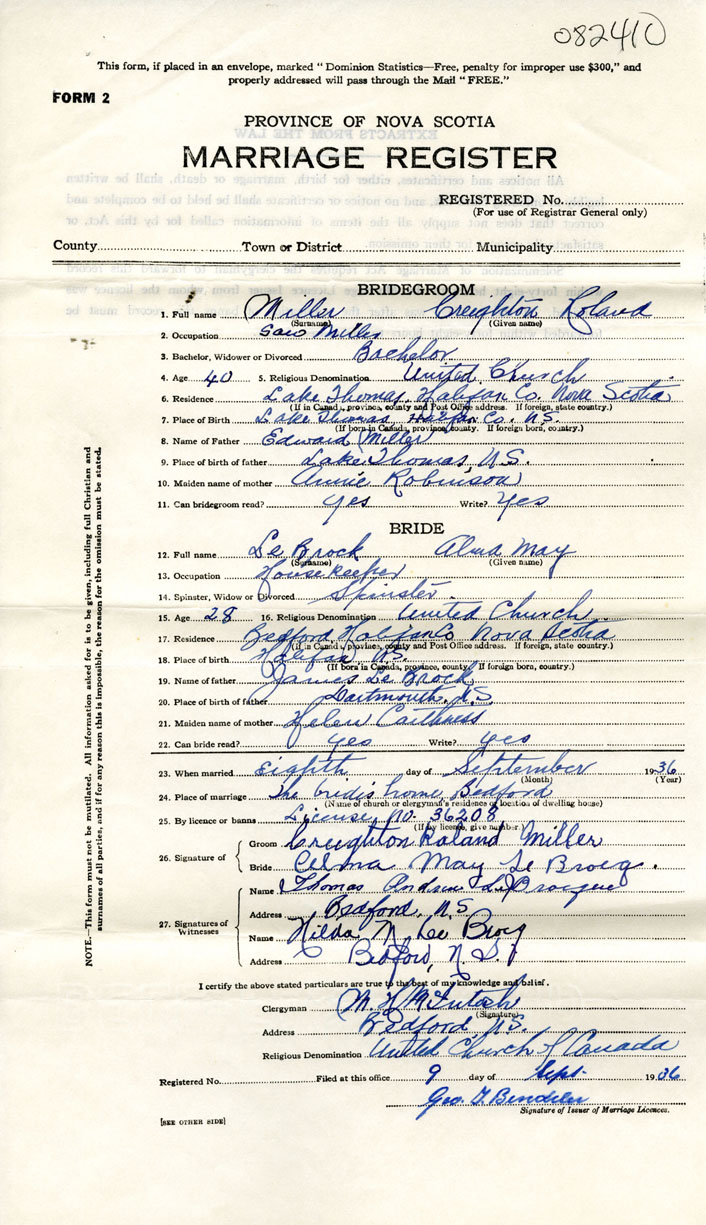 082410
This form, if placed in an envelope, marked "Dominion Statistics—Free, penalty for improper use $300," and
properly addressed will pass through the Mail "FREE."
FORM 2
PROVINCE OF NOVA SCOTIA
MARRIAGE REGISTER
REGISTERED No.
(For use of Registrar General only)
County Town or District Municipality
BRIDEGROOM
1. Full name Miller Creighton Roland
(Surname) (Given name)
2. Occupation Saw Miller
3. Bachelor, Widower or Divorced Bachelor
4. Age 40 5. Religious Denomination United Church
6. Residence Lake Thomas, Halifax Co. Nova Scotia
(If in Canada, province, county and Post Office address. If foreign, state country.)
7. Place of Birth Lake Thomas, Halifax Co. N.S.
(If born in Canada, province, county. If foreign born, country.)
8. Name of Father Edward Miller
9. Place of birth of father Lake Thomas, N.S.
10. Maiden name of mother Annie Robinson
11. Can bridegroom read? yes Write? Yes
BRIDE
12. Full name Le Brock May
(Surname) (Given name)
13. Occupation Housekeeper
14. Spinster, Widow or Divorced Spinster
15. Age 28 16. Religious Denomination United Church
17. Residence Bedford Halifax Co Nova Scotia
(If in Canada, province, county and Post Office address. If foreign, state country.)
18. Place of birth Halifax, N.S.
(If born in Canada, province, county. If foreign born, country.)
19. Name of father James Le Brock
20. Place of birth of father Dartmouth, N.S.
21. Maiden name of mother Helen Caithness
22. Can bride read? yes Write? yes
23. When married Eighth day of September 1936
(Month) (Year)
24. Place of marriage The bride's home, Bedford
(Name of church or clergyman's residence or location of dwelling house)
25. By licence or banns License, no. 36208
(If by licence, give number.)
26. Signature of Groom Creighton Roland Miller
Bride Alma May Le Brocq.
27. Signatures of Witnesses
Name Thomas Andrew Le Brocque
Address Bedford, N.S
Name Hilda N. Le Brocq
Address Bedford, N.S.
I certify the above stated particulars are true to the best of my knowledge and belief.
Clergyman M. H. McIntosh
(Signature)
Address Bedford N.S.
Religious Denomination United Church of Canada
Registered No. Filed at this office 9 day of Sept. 1936
Geo. T.
Signature of Issuer of Marriage Licences.
[SEE OTHER SIDE]
NOTE.—This form must not be mutilated. All information asked for is to be given, including full Christian and
surnames of all parties, and if for any reason this is impossible, the reason for the omission must be stated.